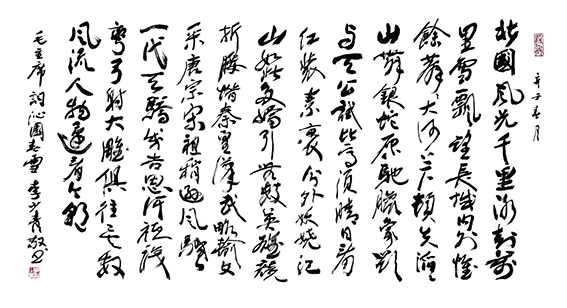 北國風光千里冰封萬
里雪飄望長城內外惟
餘莽々大河上下頓失滔々
山舞銀蛇原馳臘象欲
與天公試比高須晴日看
紅裝素裹分外妖嬈江
山如此多嬌引無數英雄競
折腰惜秦皇漢武略輸文
采唐宗宋祖稍遜風騷
一代天驕成吉思汗祇識
彎弓射大雕俱往矣數
風流人物還看今朝
毛主席詞沁園春雪 李少青敬書